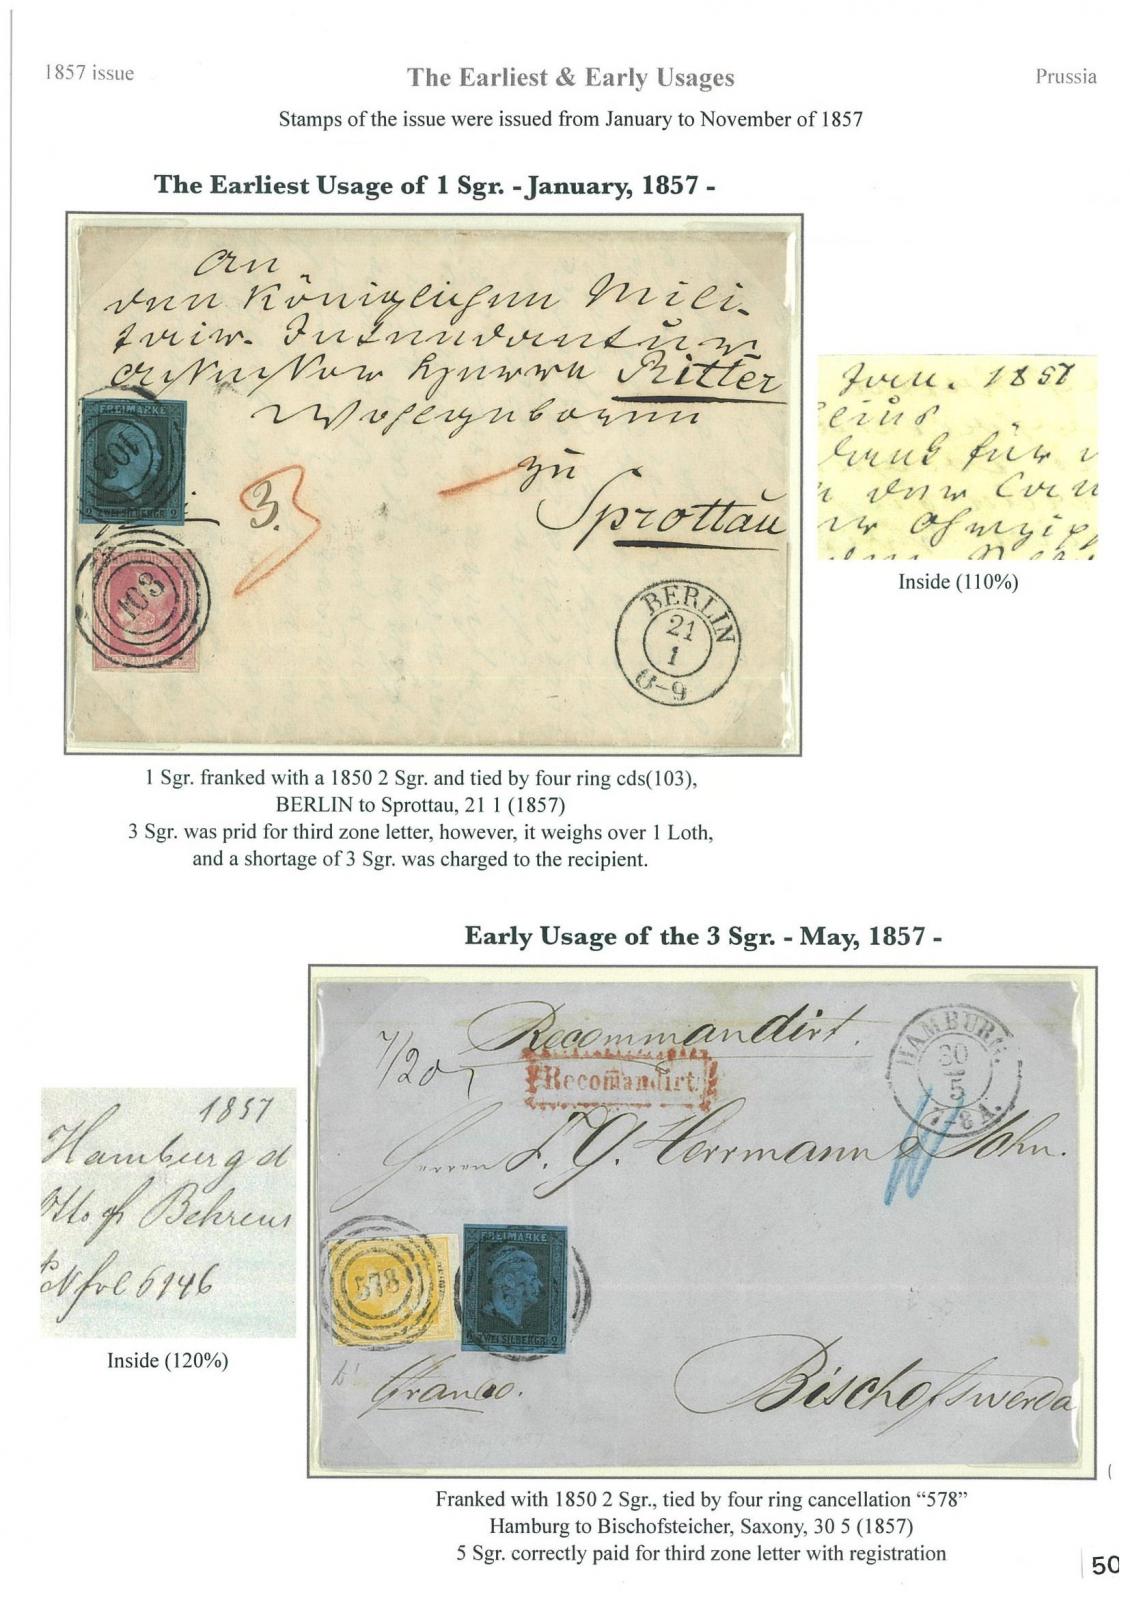 1857 issue
The Earliest & Early Usages
Prussia
Stamps of the issue were issued from January to November of 1857
The Earliest Usage of 1 Sgr. - January, 1857 -
An
den Königlichen Mili-
tair-Intendantur
Herrn Ritter
Wohlgeboren
zu
Sprottau
FREIMARKE
103
2 ZWEI SILBERGR. 2
3.
3
103
BERLIN
21
1
6-9
Jan. 1857
für
Inside (110%)
1 Sgr. franked with a 1850 2 Sgr. and tied by four ring cds(103),
BERLIN to Sprottau, 21 1 (1857)
3 Sgr. was prid for third zone letter, however, it weighs over 1 Loth,
and a shortage of 3 Sgr. was charged to the recipient.
Early Usage of the 3 Sgr. - May, 1857 -
Recommandirt.
7/20
Recomandirt.
HAMBURG.
30
5
7-8 A.
Herren F. G. Herrmann & Sohn.
578
FREIMARKE
2 ZWEI SILBERGR. 2
Franco.
Bischofswerda
1857
Hamburg d
Behrens
6146
Inside (120%)
Franked with 1850 2 Sgr., tied by four ring cancellation “578”
Hamburg to Bischofsteicher, Saxony, 30 5 (1857)
5 Sgr. correctly paid for third zone letter with registration
50